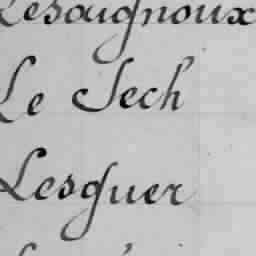 Lesaignoux
Le Sech
Lesguer